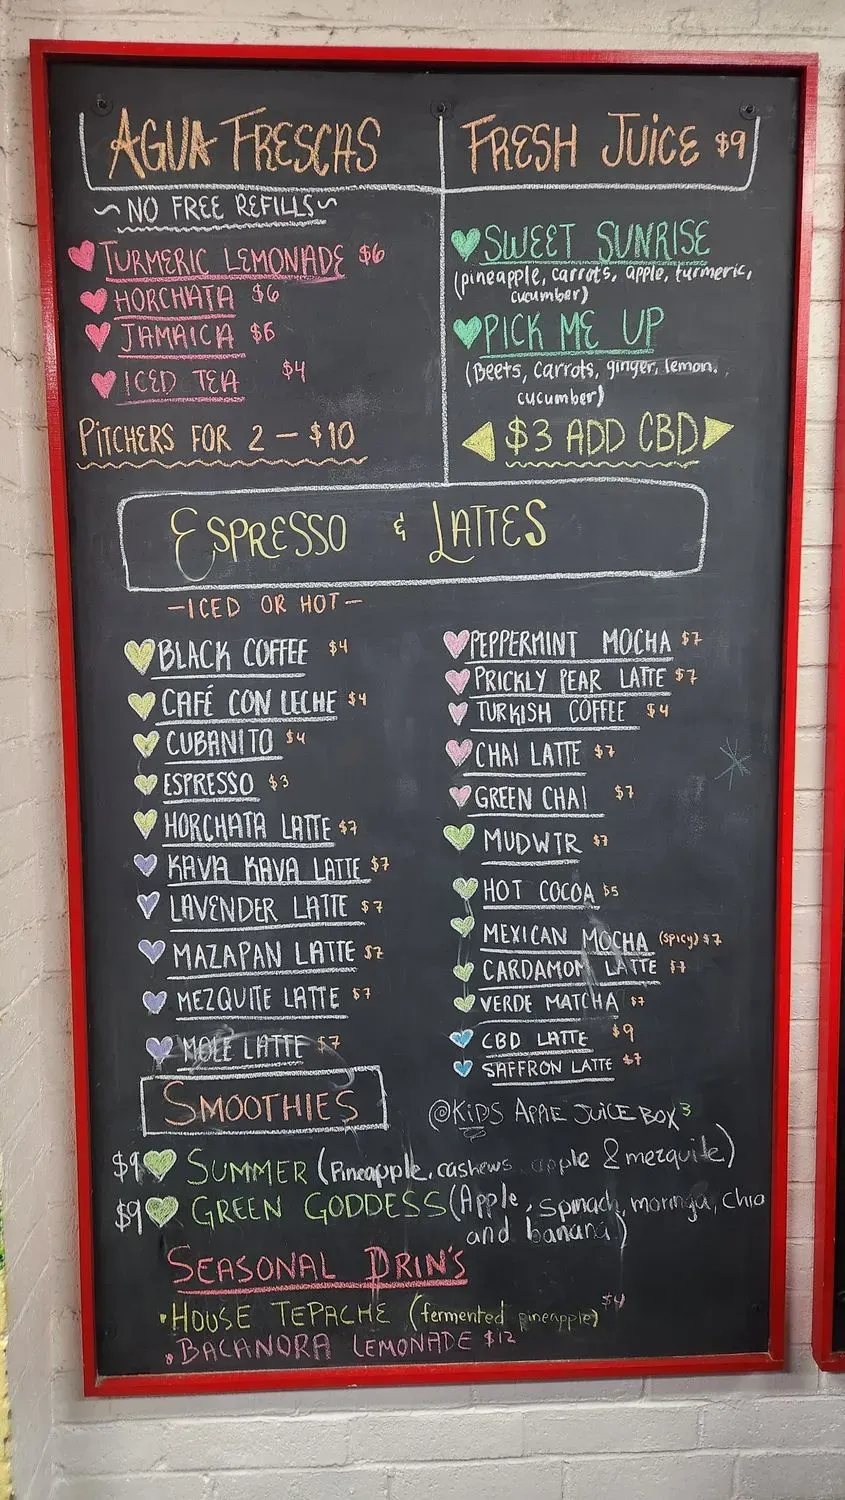 AGUA FRESCAS
~NO FREE REFILLS~
TURMERIC LEMONADE $6
HORCHATA $6
JAMAICA $6
ICED TEA $4
PITCHERS FOR 2 – $10
FRESH JUICE $9
SWEET SUNRISE
(pineapple, carrots, apple, turmeric,
cucumber)
PICK ME UP
(Beets, carrots, ginger, lemon,
cucumber)
$3 ADD CBD
ESPRESSO & LATTES
–ICED OR HOT–
BLACK COFFEE $4
CAFÉ CON LECHE $4
CUBANITO $4
ESPRESSO $3
HORCHATA LATTE $7
KAVA KAVA LATTE $7
LAVENDER LATTE $7
MAZAPAN LATTE $7
MEZQUITE LATTE $7
MOLE LATTE $7
PEPPERMINT MOCHA $7
PRICKLY PEAR LATTE $7
TURKISH COFFEE $4
CHAI LATTE $7
GREEN CHAI $7
MUDWTR $7
HOT COCOA $5
MEXICAN MOCHA (spicy) $7
CARDAMOM LATTE $7
VERDE MATCHA $7
CBD LATTE $9
SAFFRON LATTE $7
@KiDS APPlE JUICE BOX 3
SMOOTHIES
$9 SUMMER (Pineapple, cashews, apple & mezquite)
$9 GREEN GODDESS (Apple, spinach, moringa, chia
and banana)
SEASONAL DRIN'S
• HOUSE TEPACHE (fermented pineapple) $4
• BACANORA LEMONADE $12